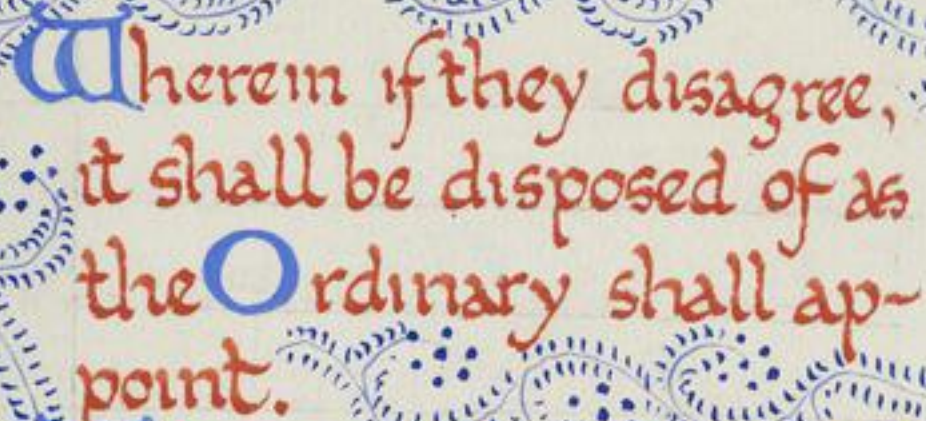 Wherein if they disagree,
it shall be disposed of as
the Ordinary shall ap-
point.